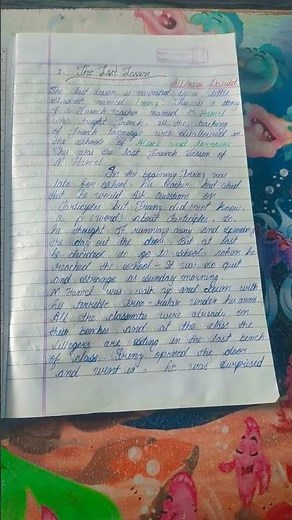 2. The Last Lesson
Alphonse Daudet
The last lesson is narrated by a little
student named Franz. This is a story
of a French teacher named M. Hamel
who taught French. as the teaching
of French language was disallowed in
the schools of Alsace and Lorraine
This was the last French lesson of
M. Hamel.
In the beginning Franz was
late for school. his teacher had said
that he would ask questions on
Participles but Franz did not know
a words about Participles. So,
he thought of running away and spending
the day out the door. But at last
he decided to go to school. when he
reached the school. It was so quiet
and strange as sunday morning.
M. Hamel was walk up and down with
his terrible iron-ruler under his arm.
All the classmate were already on
their benches. and at the
villagers are sitting in the last bench
of class. Franz opened the door
and went in. he was surprised